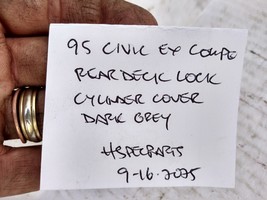 95 CIVIC EX COUPE
REAR DECK LOCK
CYLINDER COVER
DARK GREY
#SPECPARTS
9-16-2025